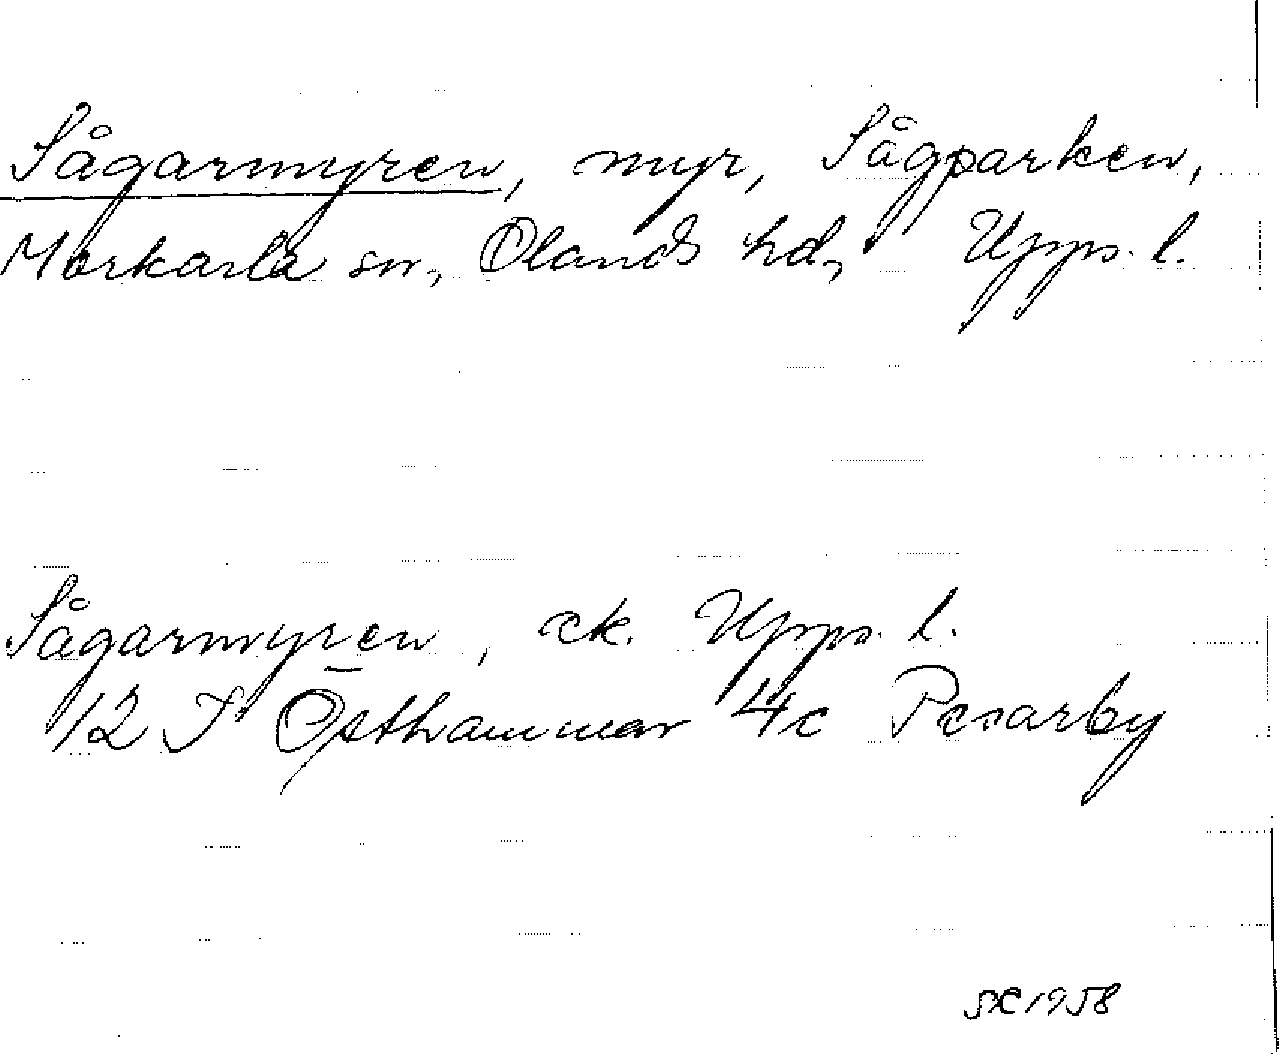 Sågarmyren, myr, Sågparken,
Morkarla sn, Olands hd, Upps. l.
Sågarmyren, ek. Upps. l.
12 I Östhammar 4c Pesarby
1958